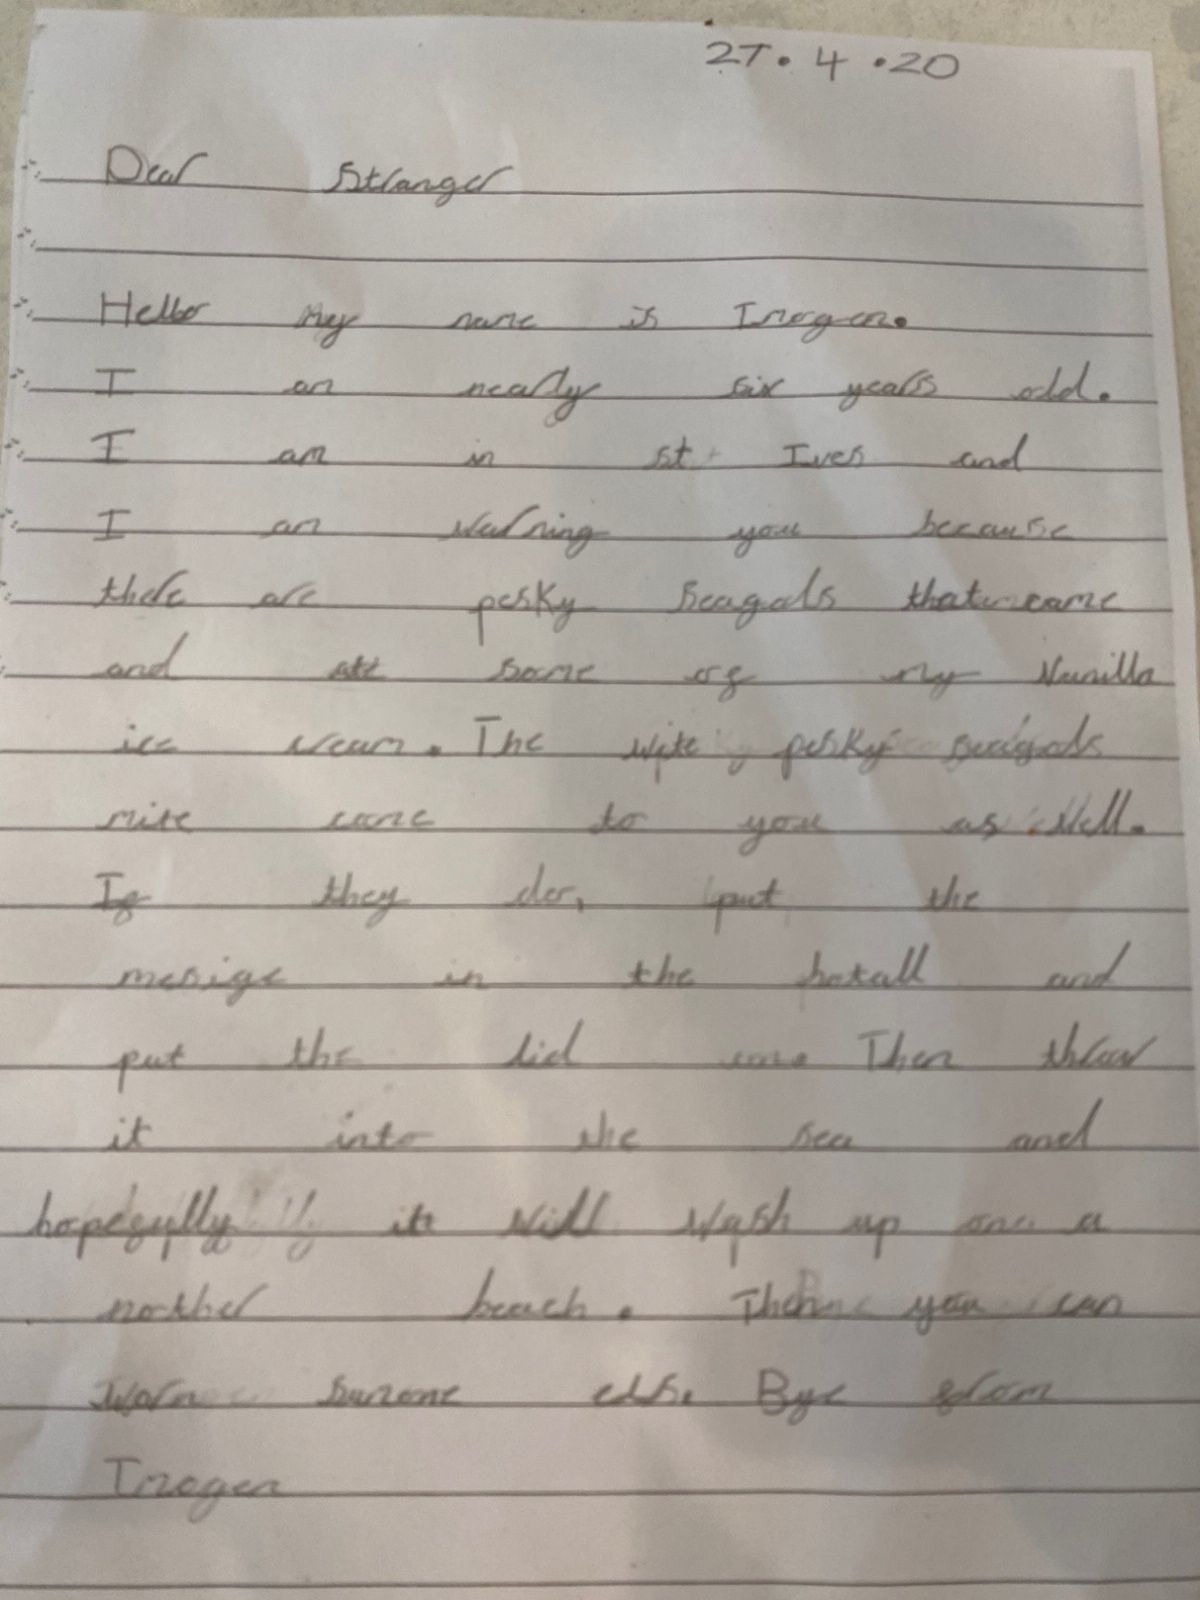 27.4.20
Dear Stranger
Hello my name is Imogen.
I am nearly six years old.
I am in st Ives and
I am warning you because
there are pesky seagals that came
and ate some of my vanilla
ice cream. The wite pesky seagals
mite come to you as well.
If they do, put the
mesige in the botall and
put the lid on. Then throw
it into the sea and
hopefully it will wash up on a
nother beach. Then you can
worn sumone els. Bye from
Imogen